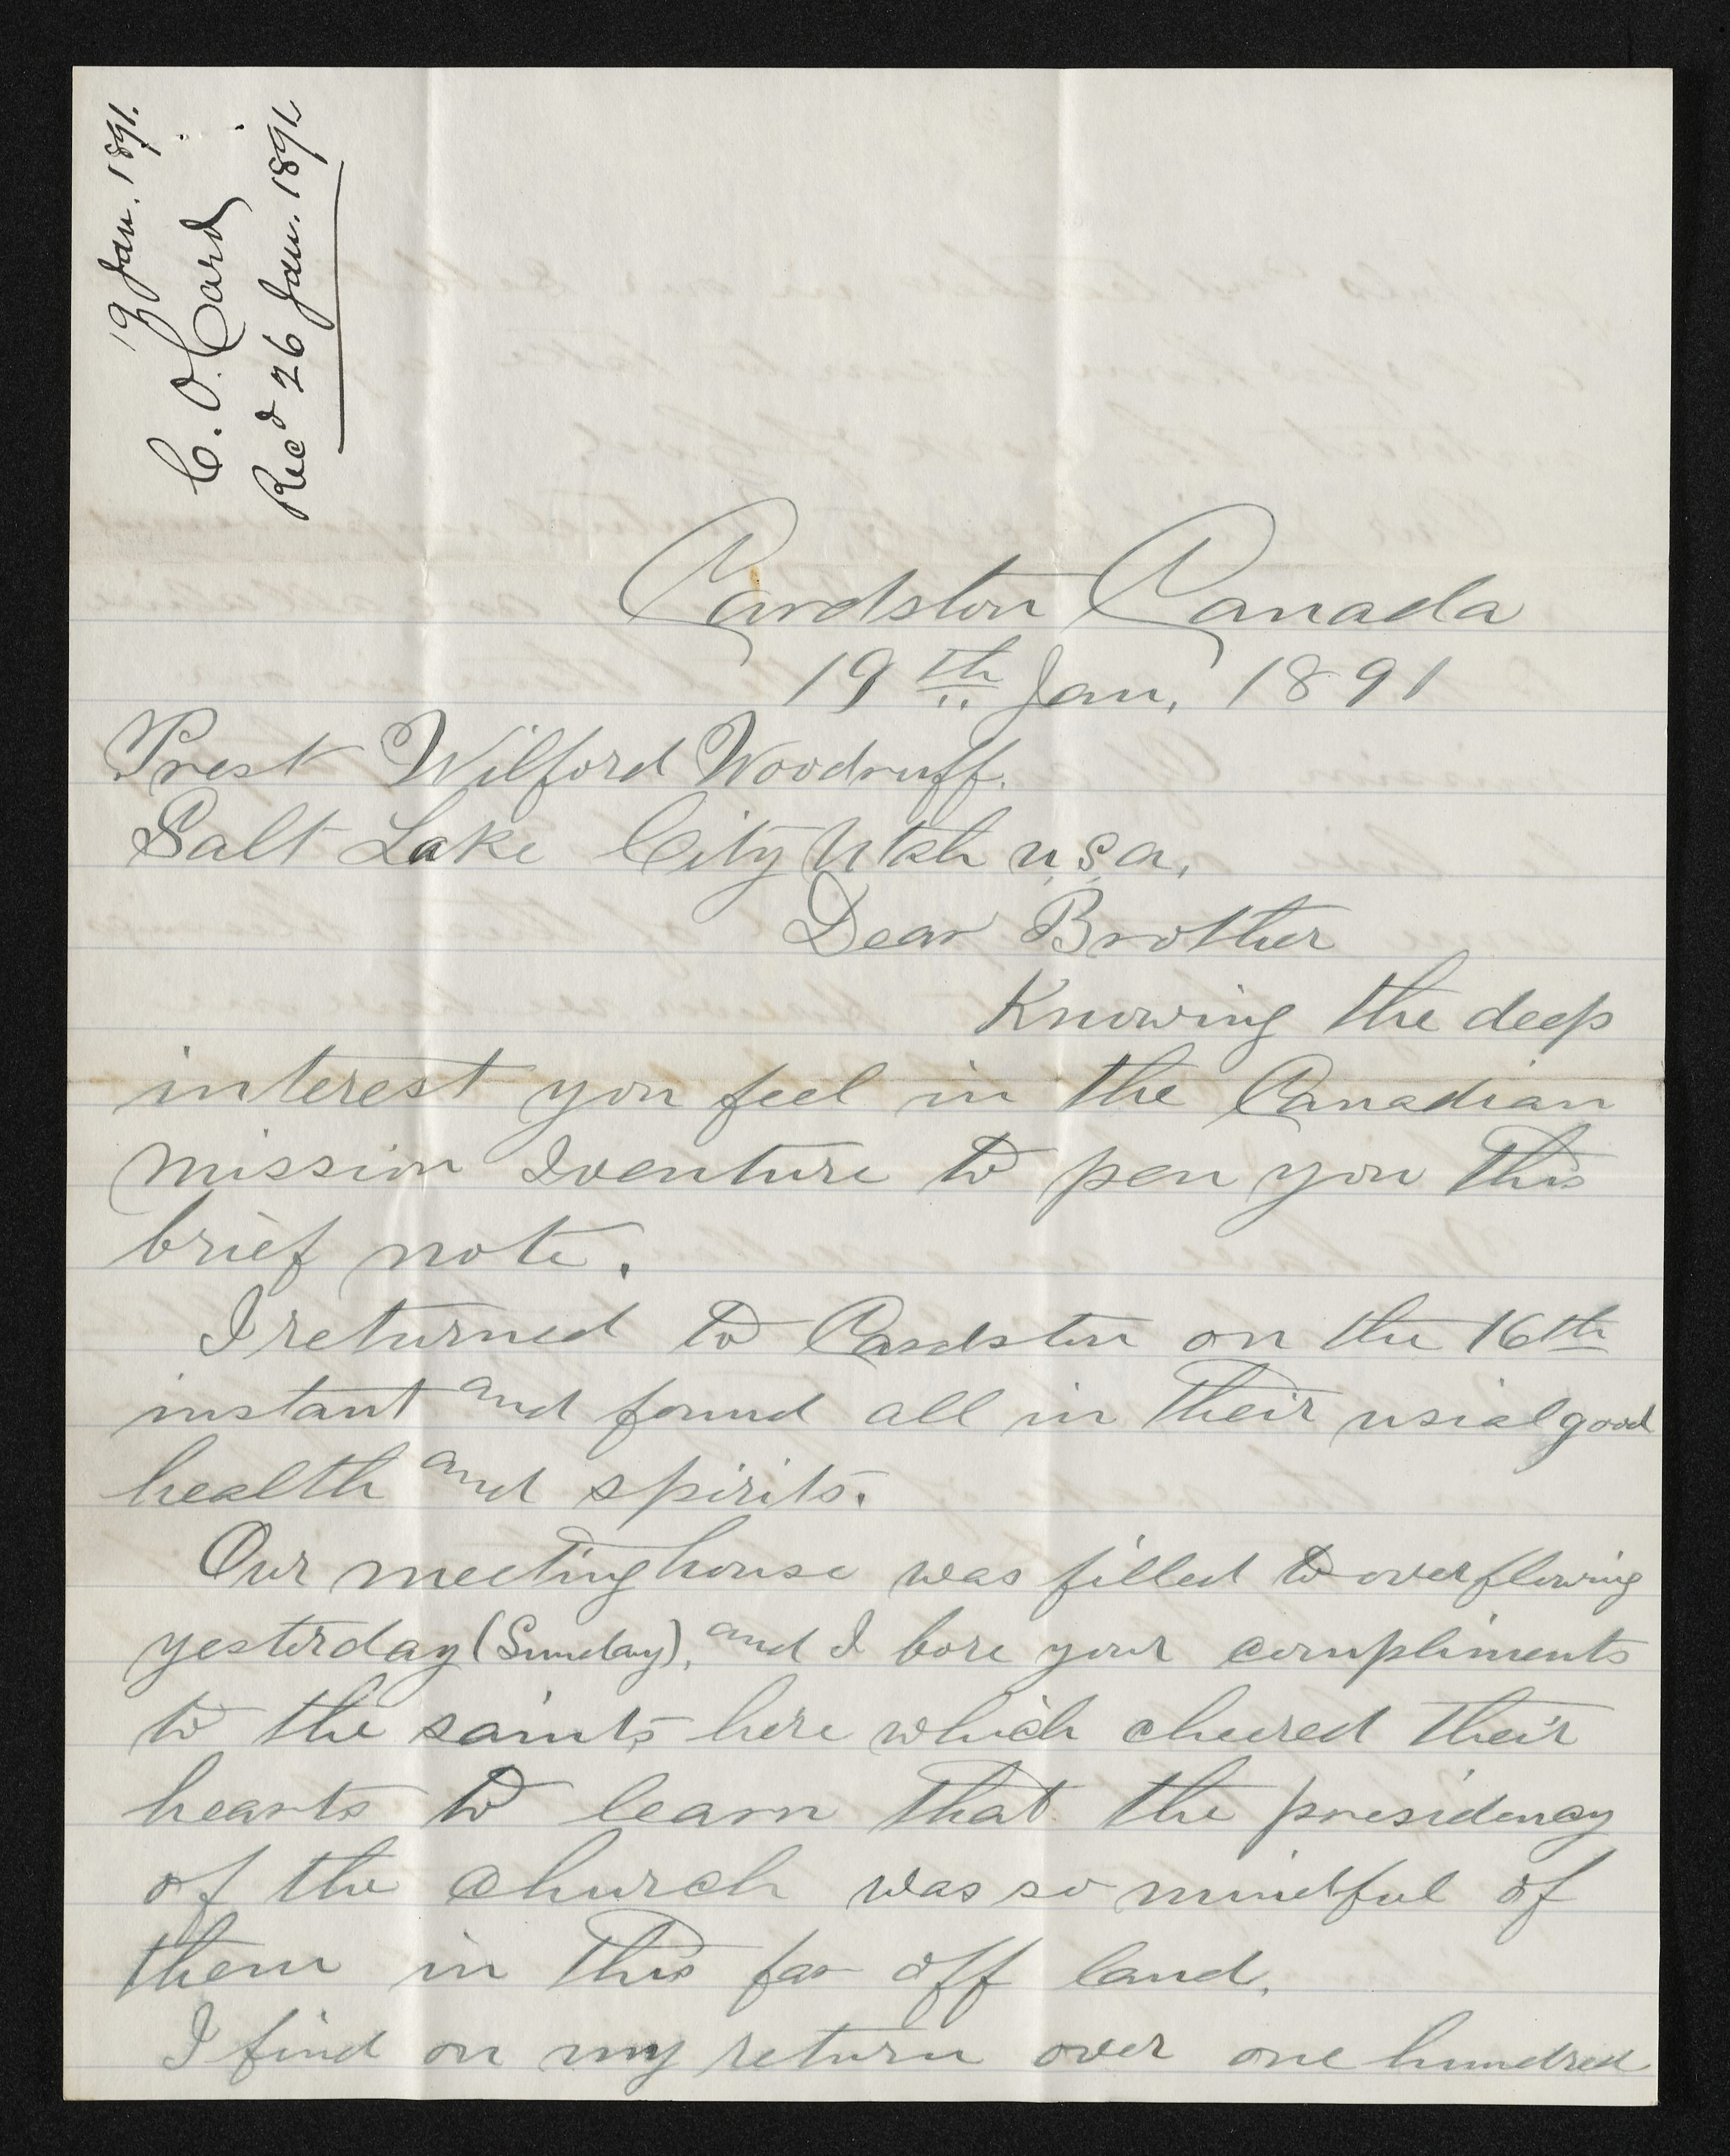 19 Jan. 1891.
C. O. Card
Recd 26 Jan. 1891
Cardston Canada
19th Jan, 1891
Prest Wilford Woodruff.
Salt Lake City Utah U.S.A.
Dear Brother
Knowing the deep
interest you feel in the Canadian
mission I venture to pen you this
brief note.
I returned to Cardston on the 16th
instant and found all in their usial good
health and spirits.
Our meeting house was filled to overflowing
yesterday (Sunday), and I bore your compliments
to the saints here which cheered their
hearts to learn that the presidency
of the church was so mindful of
them in this far off land.
I find on my return over one hundred